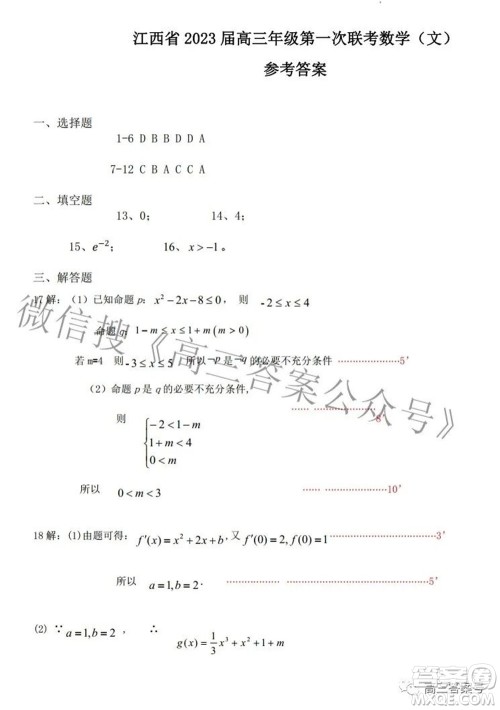 江西省 2023 届高三年级第一次联考数学（文）
参考答案
一、选择题
1-6 D B B D D A
7-12 C B A C C A
二、填空题
13、0； 14、4；
15、e⁻²； 16、x>−1。
三、解答题
17解：（1）已知命题 p：x²−2x−8≤0， 则 -2≤x≤4
命题 q：1−m≤x≤1+m(m>0)
若 m=4 则 -3≤x≤5 所以¬p是¬q的必要不充分条件 ………………5′
（2）命题 p 是 q 的必要不充分条件
则 { −2<1−m …… ………………8′
1+m<4
0<m
所以 0<m<3 ………………10′
18解：(1)由题可得：f′(x)=x²+2x+b，又 f′(0)=2, f(0)=1 ………………3′
所以 a=1,b=2． ………………5′
(2) ∵ a=1,b=2 ， ∴ g(x)=1/3x³+x²+1+m
微信搜《高三答案公众号》
高三答案号
答案圈